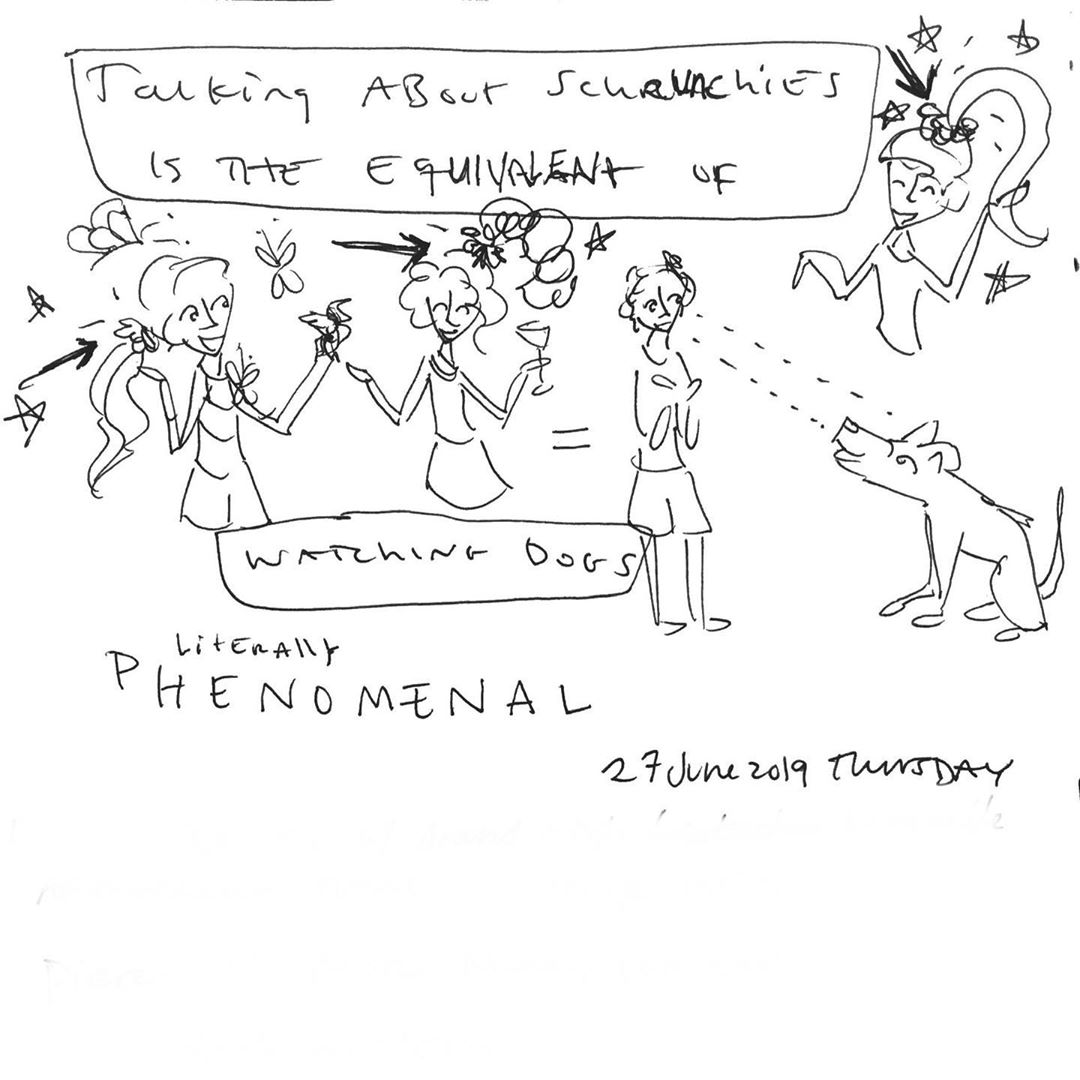 Talking ABout SCHRUNChiES
IS THE EQUIVALENT OF
WATCHING DOGS
LitERAlly
PHENOMENAL
27 June 2019 THURSDAY